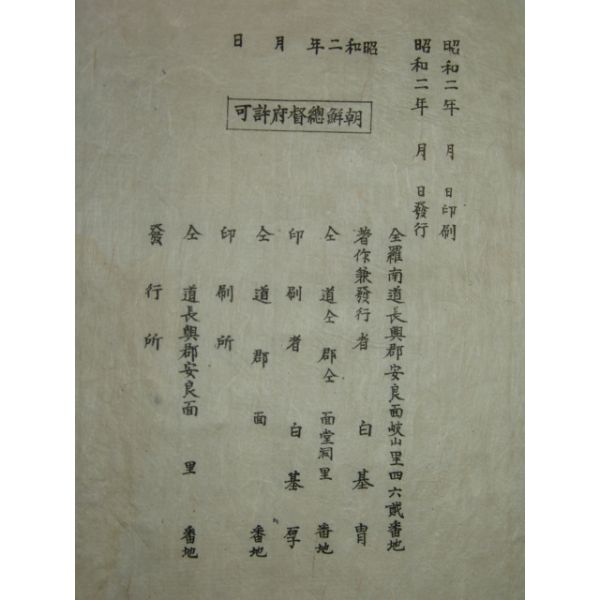 昭和二年　月　日印刷
昭和二年　月　日發行
昭和二年　月　日
朝鮮總督府許可
全羅南道長興郡安良面岐山里四六貳番地
著作兼發行者　白基冑
仝道仝郡仝面堂洞里　番地
印刷者　白基厚
仝道　郡　面　番地
印刷所
仝道長興郡安良面　里　番地
發行所